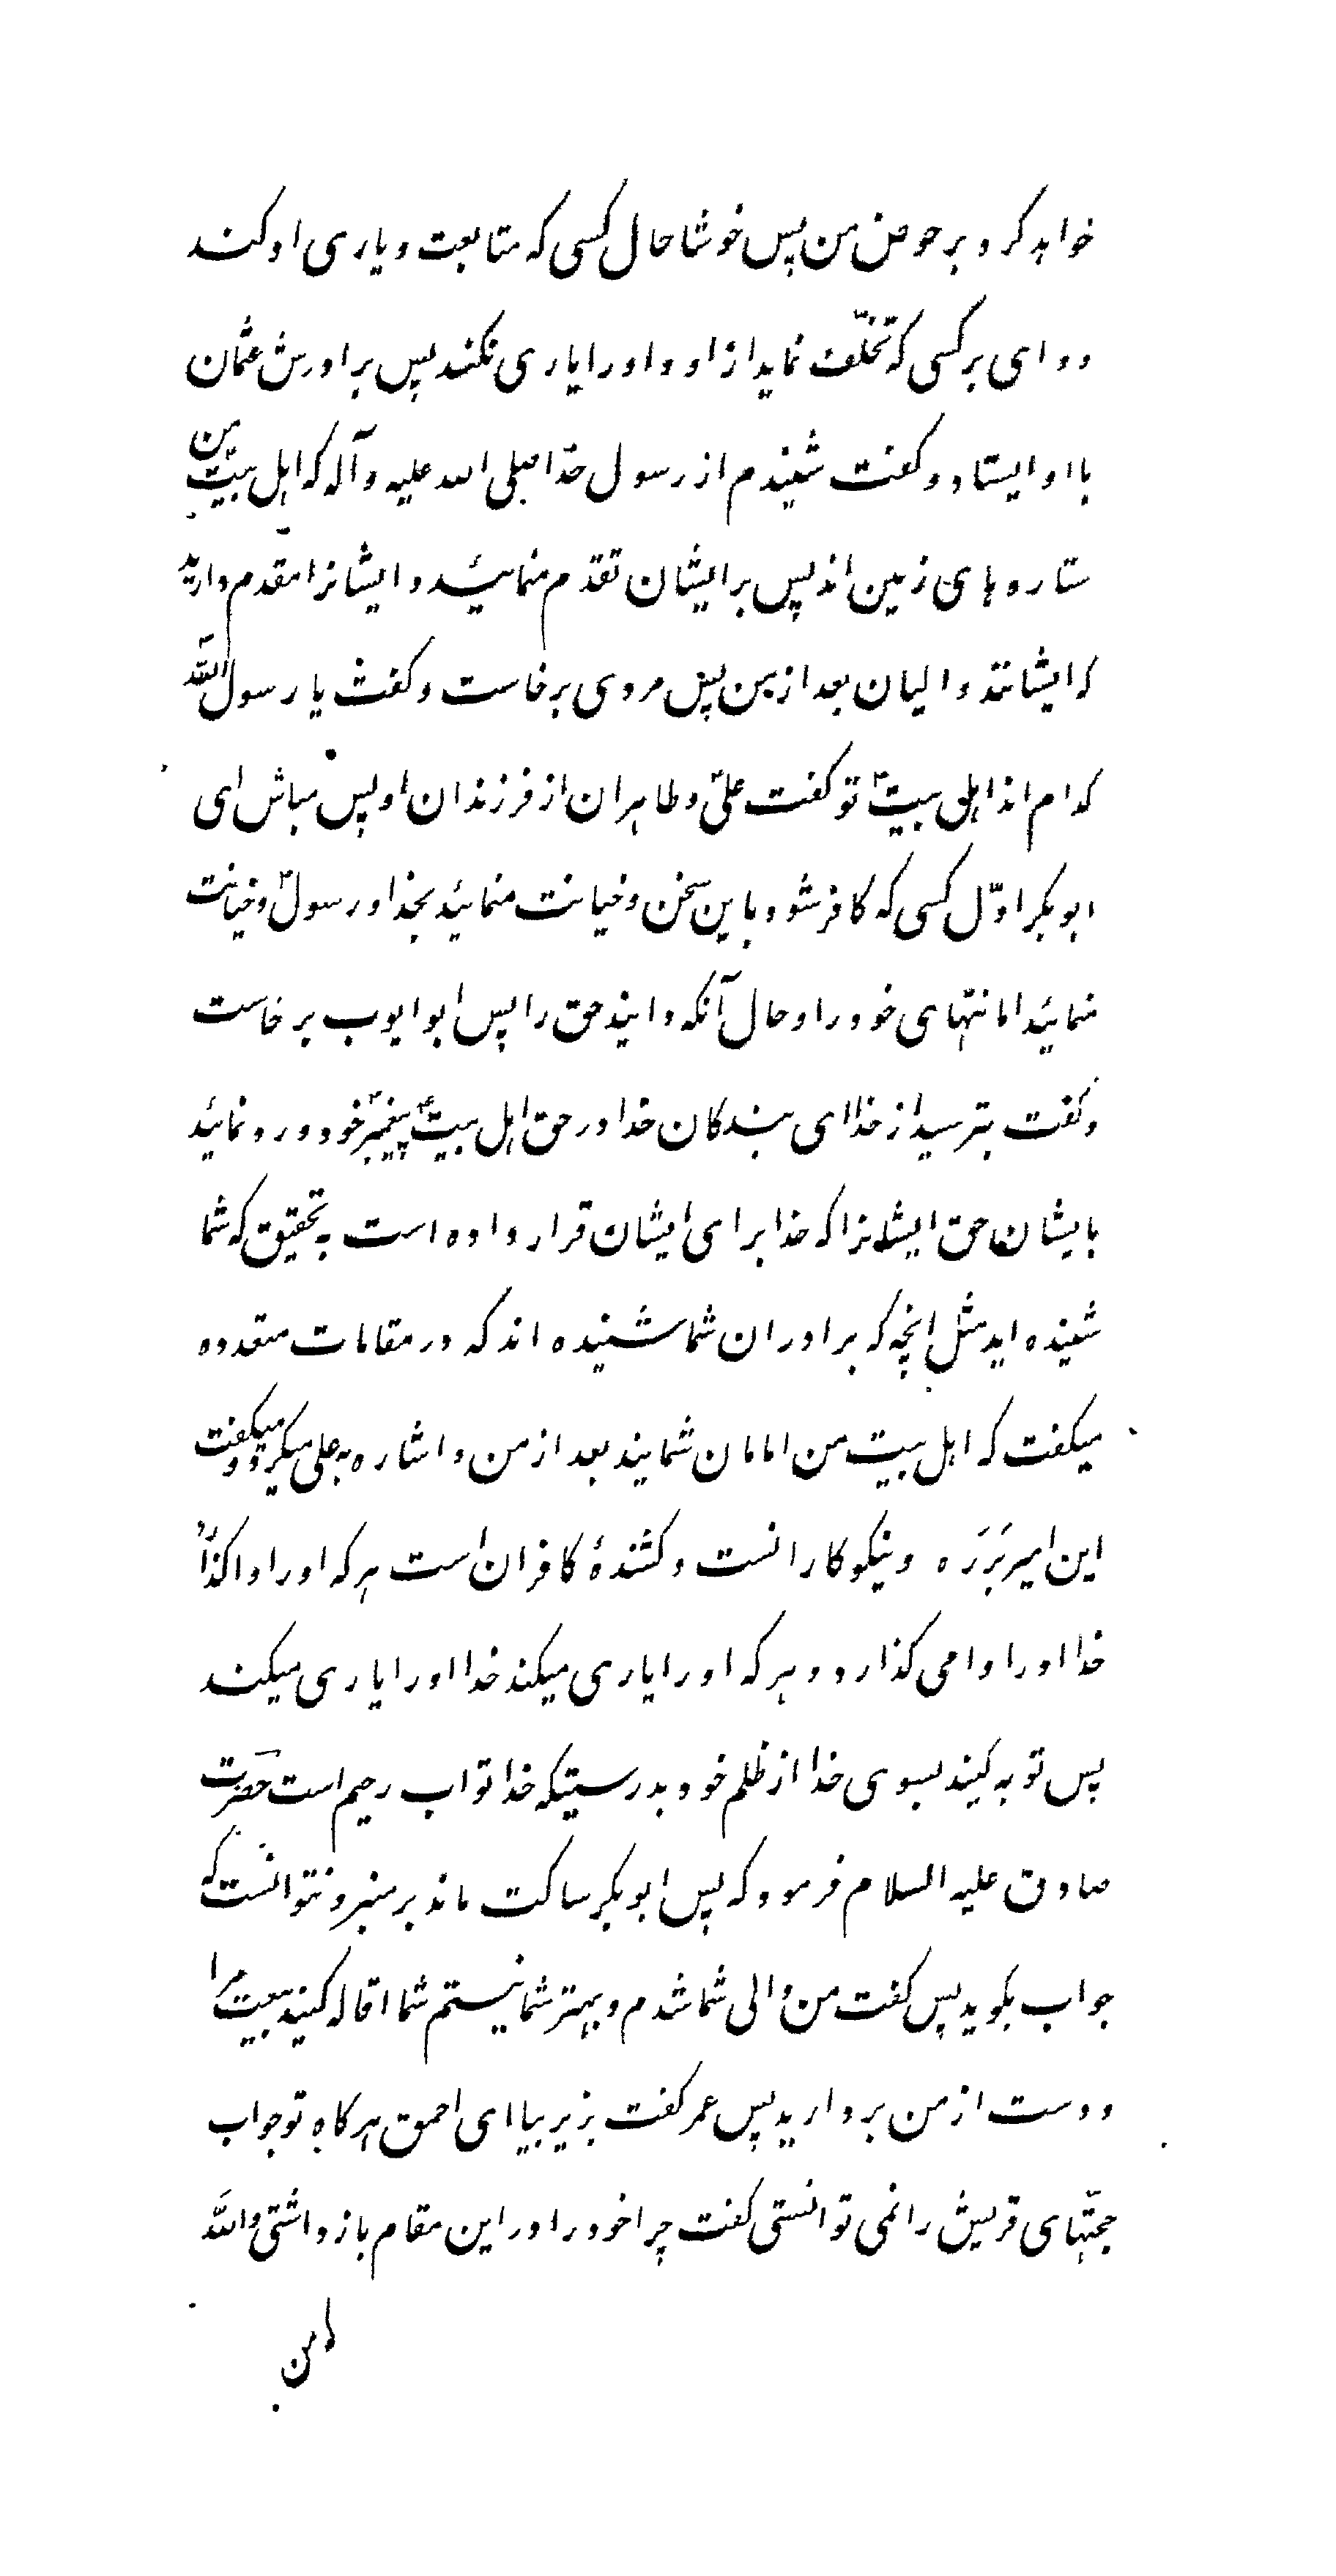 خواهد کرد بر حوض من پس خوشا حال کسی که متابعت و یاری او کند
و وای بر کسی که تخلّف نماید از او و او را یاری نکند پس برادرش عثمان
با او ایستاد و کفت شنیدم از رسول خدا صلی الله علیه و آله که اهل بیت من
ستاره‌های زمین‌اند پس بر ایشان تقدّم منمائید و ایشانرا مقدم دارید
که ایشانند والیان بعد از من پس مردی برخاست و کفت یا رسول الله
کدام‌اند اهل بیت تو کفت علیّ و طاهران از فرزندان او پس مباش ای
ابوبکر اوّل کسی که کافر شود باین سخن و خیانت منمائید بخدا و رسول و خیانت
منمائید امانتهای خود را و حال آنکه دانید حق را پس ابو ایوب برخاست
و کفت بترسید از خدا ای بندکان خدا در حق اهل بیت پیغمبر خود و رد نمائید
بایشان حق ایشانرا که خدا برای ایشان قرار داده است به تحقیق که شما
شنیده اید مثل انچه که برادران شما شنیده اند که در مقامات متعدده
میکفت که اهل بیت من امامان شمایند بعد از من و اشاره به علی میکرد و میکفت
این امیر بَرَرَه و نیکوکارانست و کشندهٔ کافران است هر که او را واکذارد
خدا او را وامی کذارد و هر که او را یاری میکند خدا او را یاری میکند
پس توبه کنید بسوی خدا از ظلم خود بدرستیکه خدا تواب رحیم است حضرت
صادق علیه السلام فرمود که پس ابوبکر ساکت ماند بر منبر و نتوانست که
جواب بکوید پس کفت من والی شما شدم و بهتر شما نیستم شما اقاله کنید بیعت مرا
و دست از من بردارید پس عمر کفت بزیر بیا ای احمق هر کاه تو جواب
حجّتهای قریش را نمی توانستی کفت چرا خود را در این مقام باز داشتی والله